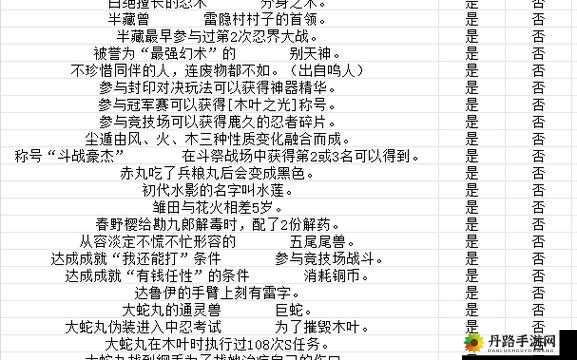 白绝擅长的忍术 分身之术。 是 否
半藏曾 雷隐村村子的首领。 是 否
半藏最早参与过第2次忍界大战。 是 否
被誉为“最强幻术”的 别天神。 是 否
不珍惜同伴的人，连废物都不如。（出自鸣人） 是 否
参与封印对决玩法可以获得神器精华。 是 否
参与冠军赛可以获得[木叶之光]称号。 是 否
参与竞技场可以获得鹿久的忍者碎片。 是 否
尘遁由风、火、木三种性质变化融合而成。 是 否
称号“斗战豪杰” 在斗祭战场中获得第2或3名可以得到。 是 否
赤丸吃了兵粮丸后会变成黑色。 是 否
初代水影的名字叫水莲。 是 否
雏田与花火相差5岁。 是 否
春野樱给勘九郎解毒时，配了2份解药。 是 否
从容淡定不慌不忙形容的 五尾尾兽。 是 否
达成成就“我还能打”条件 参与竞技场战斗。 是 否
达成成就“有钱任性”的条件 消耗铜币。 是 否
达鲁伊的手臂上刻有雷字。 是 否
大蛇丸的通灵兽 巨蛇。 是 否
大蛇丸伪装进入中忍考试 为了摧毁木叶。 是 否
大蛇丸在木叶时执行过108次S任务。 是 否
大蛇丸找到纲手为了找她治疗自己的伤口 是 否
丹路手游网